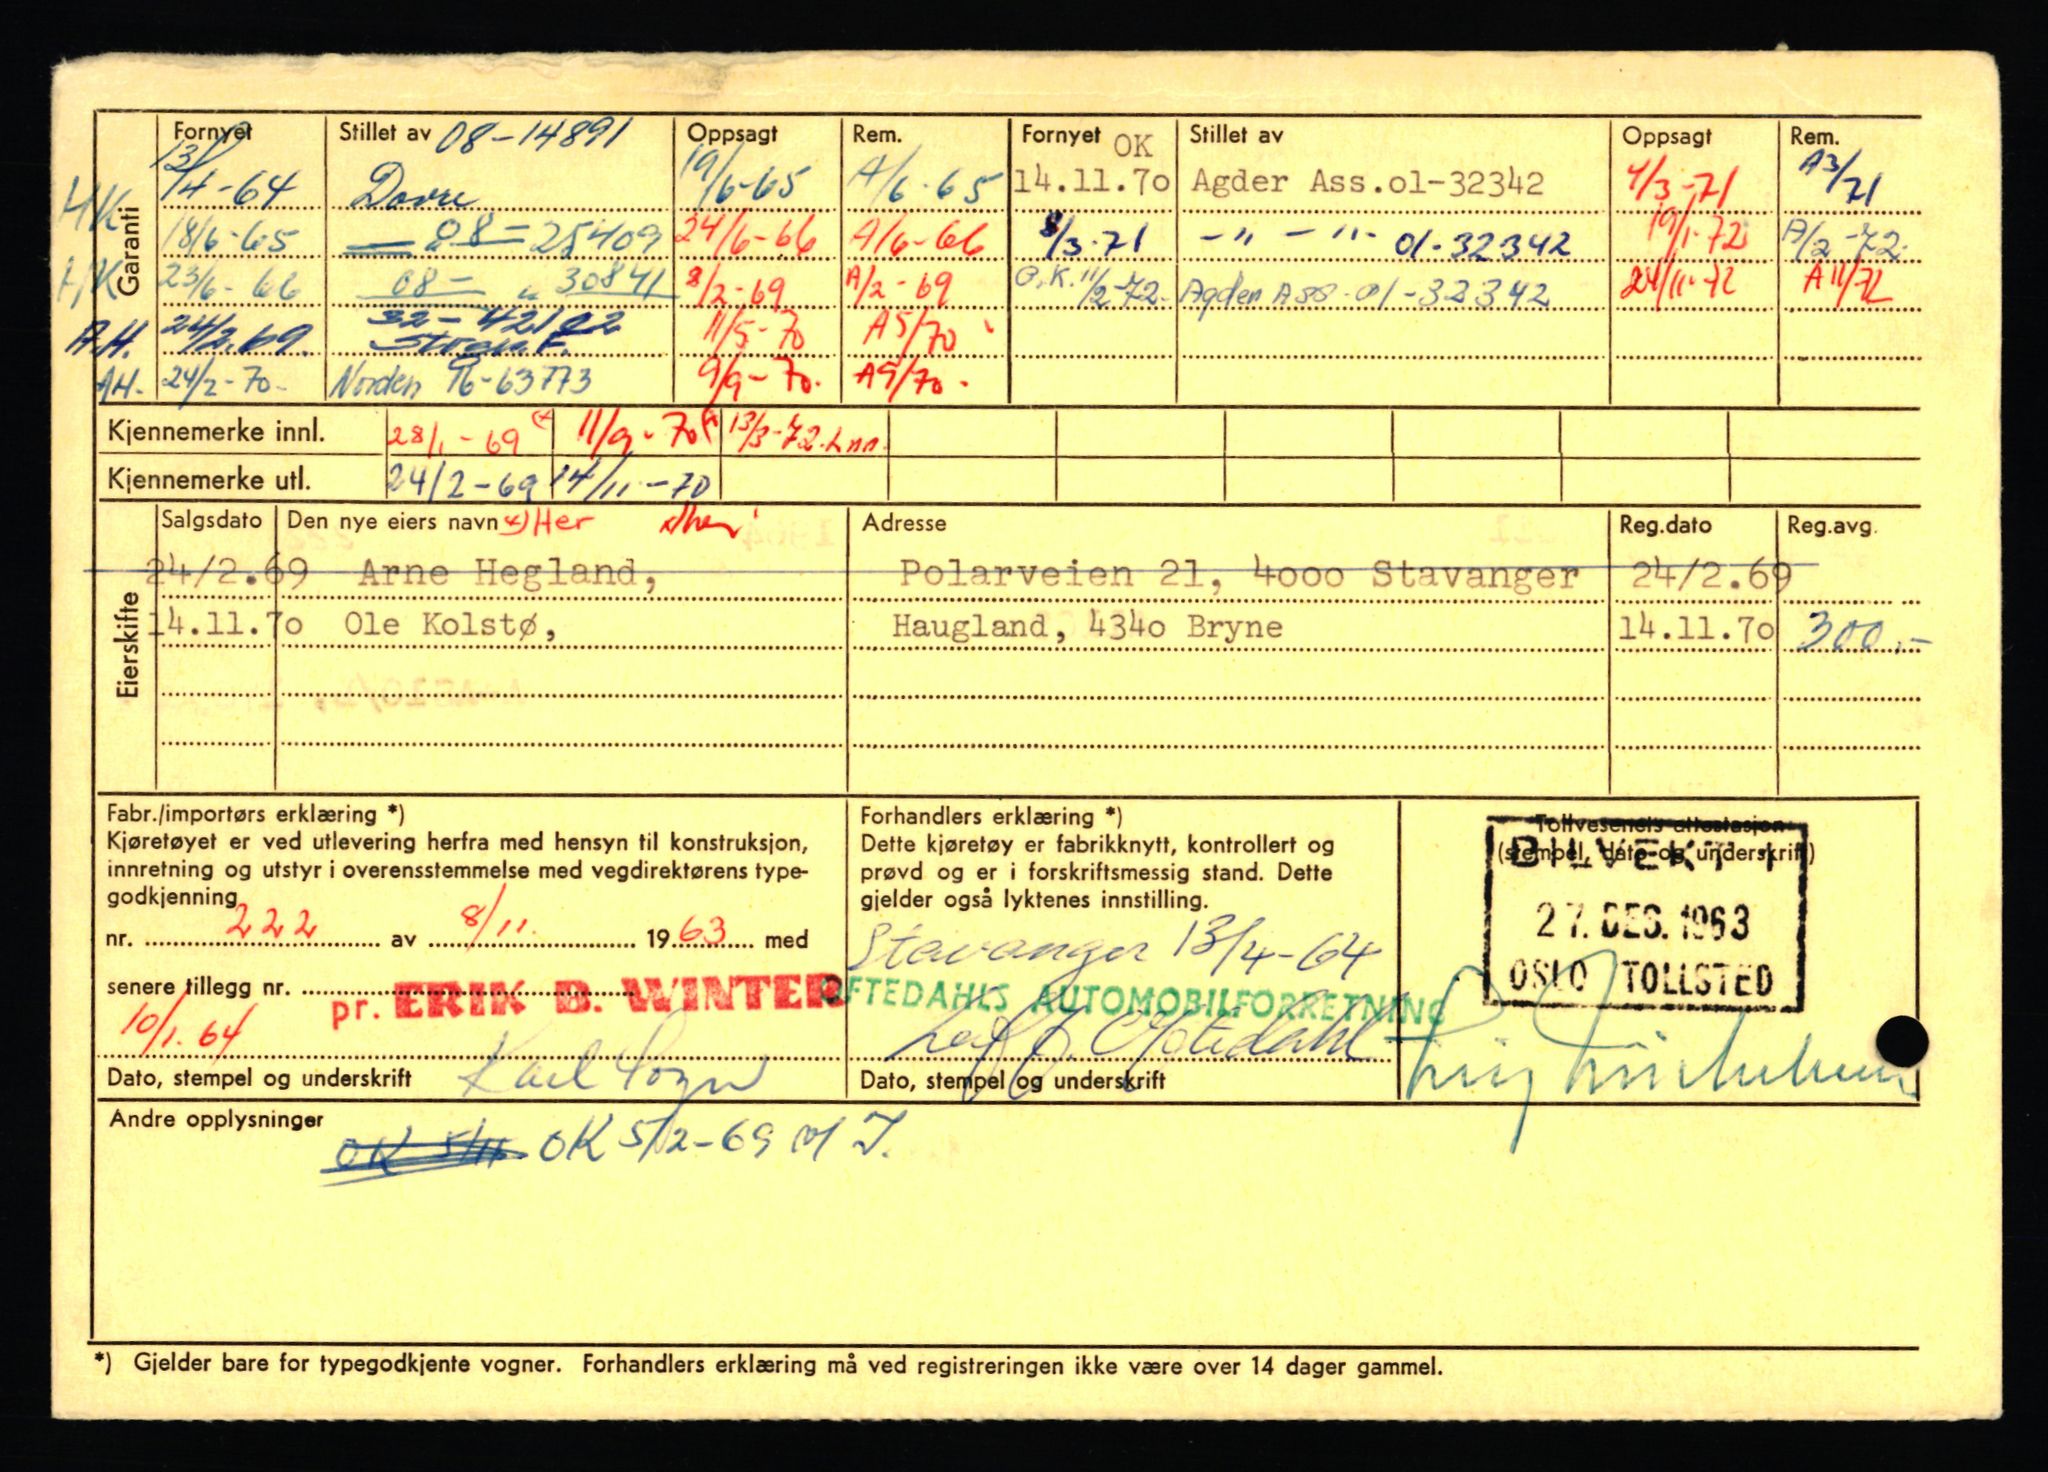 Fornyet Stillet av 08-14891 Oppsagt Rem. Fornyet OK Stillet av Oppsagt Rem.
Garanti
HK 13/4-64 Dovre 19/6-65 A/6-65 14.11.70 Agder Ass.01-32342 4/3-71 A3/71
18/6-65 — 08- 25409 24/6-66 A/6-66 8/3-71 -"- -"- 01-32342 19/1-72 A/2-72.
HK 23/6-66 08- " 30841 8/2-69 A/2-69 O.K. 11/2-72. Agder Ass. 01-32342 24/11-72 A 11/72
A.H. 24/2.69. 32-42122 11/5-70 A5/70
Storm F.
AH. 24/2-70- Norden 76-63773 9/9-70. A9/70.
Kjennemerke innl. 28/1-69 x) 11/9-70 x) 13/3-72. Inn.
Kjennemerke utl. 24/2-69 14/11-70
Eierskifte
Salgsdato Den nye eiers navn x) Her x) her Adresse Reg.dato Reg.avg.
24/2.69 Arne Hegland, Polarveien 21, 4000 Stavanger 24/2.69
14.11.70 Ole Kolstø, Haugland, 4340 Bryne 14.11.70 300.-
Fabr./importørs erklæring *)
Kjøretøyet er ved utlevering herfra med hensyn til konstruksjon,
innretning og utstyr i overensstemmelse med vegdirektørens type-
godkjenning
nr. 222 av 8/11. 1963 med
senere tillegg nr.
10/1.64 pr. ERIK B. WINTER
Dato, stempel og underskrift
Forhandlers erklæring *)
Dette kjøretøy er fabrikknytt, kontrollert og
prøvd og er i forskriftsmessig stand. Dette
gjelder også lyktenes innstilling.
Stavanger 13/4-64
OFTEDAHLS AUTOMOBILFORRETNING
Leif J. Oftedahl
Dato, stempel og underskrift
Tollvesenets attestasjon
(stempel, dato og underskrift)
BILVEKT I
27. DES. 1963
OSLO TOLLSTED
Andre opplysninger
OK 5/11. OK 5/2-69 M J.
*) Gjelder bare for typegodkjente vogner. Forhandlers erklæring må ved registreringen ikke være over 14 dager gammel.